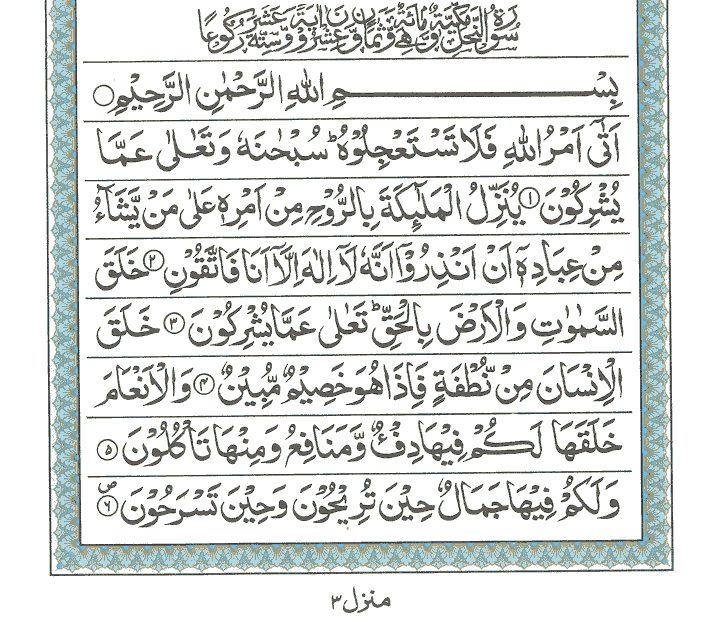 سُوْرَةُ النَّحْلِ مَكِّيَّةٌ وَّهِيَ مِائَةٌ وَّثَمَانٍ وَّعِشْرُوْنَ اٰيَةً وَّسِتَّةَ عَشَرَ رُكُوْعًا
بِسْمِ اللّٰهِ الرَّحْمٰنِ الرَّحِيْمِ ○
اَتٰۤى اَمْرُ اللّٰهِ فَلَا تَسْتَعْجِلُوْهُ ؕ سُبْحٰنَهٗ وَ تَعٰلٰى عَمَّا
يُشْرِكُوْنَ ﴿۱﴾ يُنَزِّلُ الْمَلٰٓئِكَةَ بِالرُّوْحِ مِنْ اَمْرِهٖ عَلٰى مَنْ يَّشَآءُ
مِنْ عِبَادِهٖۤ اَنْ اَنْذِرُوْۤا اَنَّهٗ لَاۤ اِلٰهَ اِلَّاۤ اَنَا فَاتَّقُوْنِ ﴿۲﴾ خَلَقَ
السَّمٰوٰتِ وَالْاَرْضَ بِالْحَقِّ ؕ تَعٰلٰى عَمَّا يُشْرِكُوْنَ ﴿۳﴾ خَلَقَ
الْاِنْسَانَ مِنْ نُّطْفَةٍ فَاِذَا هُوَ خَصِيْمٌ مُّبِيْنٌ ﴿۴﴾ وَالْاَنْعَامَ
خَلَقَهَا لَكُمْ فِيْهَا دِفْءٌ وَّمَنَافِعُ وَمِنْهَا تَاْكُلُوْنَ ﴿۵﴾
وَلَكُمْ فِيْهَا جَمَالٌ حِيْنَ تُرِيْحُوْنَ وَحِيْنَ تَسْرَحُوْنَ ﴿۶﴾ ص
منزل ۳